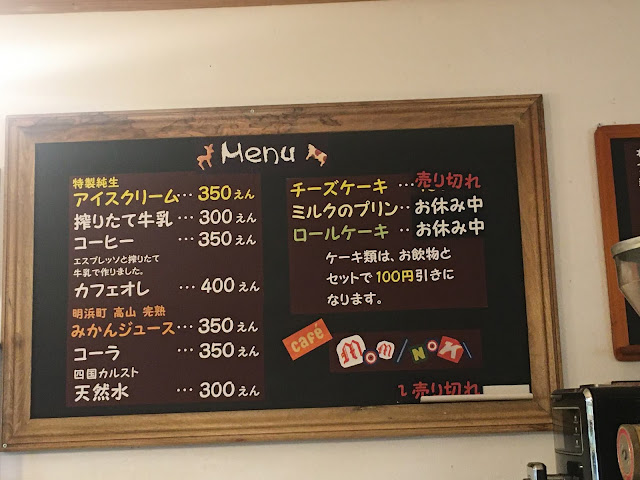 Menu
特製純生
アイスクリーム… 350えん
搾りたて牛乳 … 300えん
コーヒー … 350えん
エスプレッソと搾りたて
牛乳で作りました。
カフェオレ … 400えん
明浜町 高山 完熟
みかんジュース… 350えん
コーラ … 350えん
四国カルスト
天然水 … 300えん
チーズケーキ … 売り切れ
ミルクのプリン‥ お休み中
ロールケーキ ‥ お休み中
ケーキ類は、お飲物と
セットで100円引きに
なります。
café
MOM/NOK
売り切れ